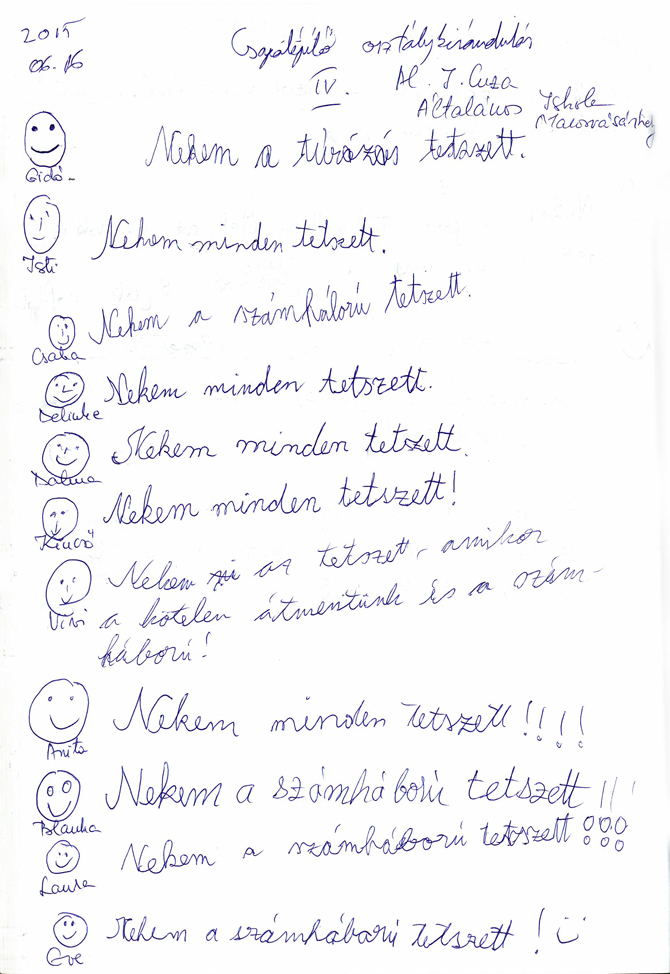 2015
06.16
Csapatépítő osztálykirándulás
IV.
Al. I. Cuza
Általános Iskola
Marosvásárhely
Gidó
Nekem a túrázás tetszett.
Isti
Nekem minden tetszett.
Csaba
Nekem a számháború tetszett.
Delinke
Nekem minden tetszett.
Dalma
Nekem minden tetszett.
Kincső
Nekem minden tetszett!
Vivi
Nekem az tetszett, amikor
a kötelen átmentünk és a szám-
háború!
Anita
Nekem minden tetszett!!!!
Blanka
Nekem a számháború tetszett!!!
Laura
Nekem a számháború tetszett!!!
Eve
Nekem a számháború tetszett!